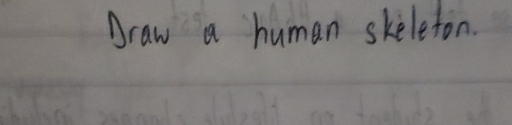 Draw a human skeleton.